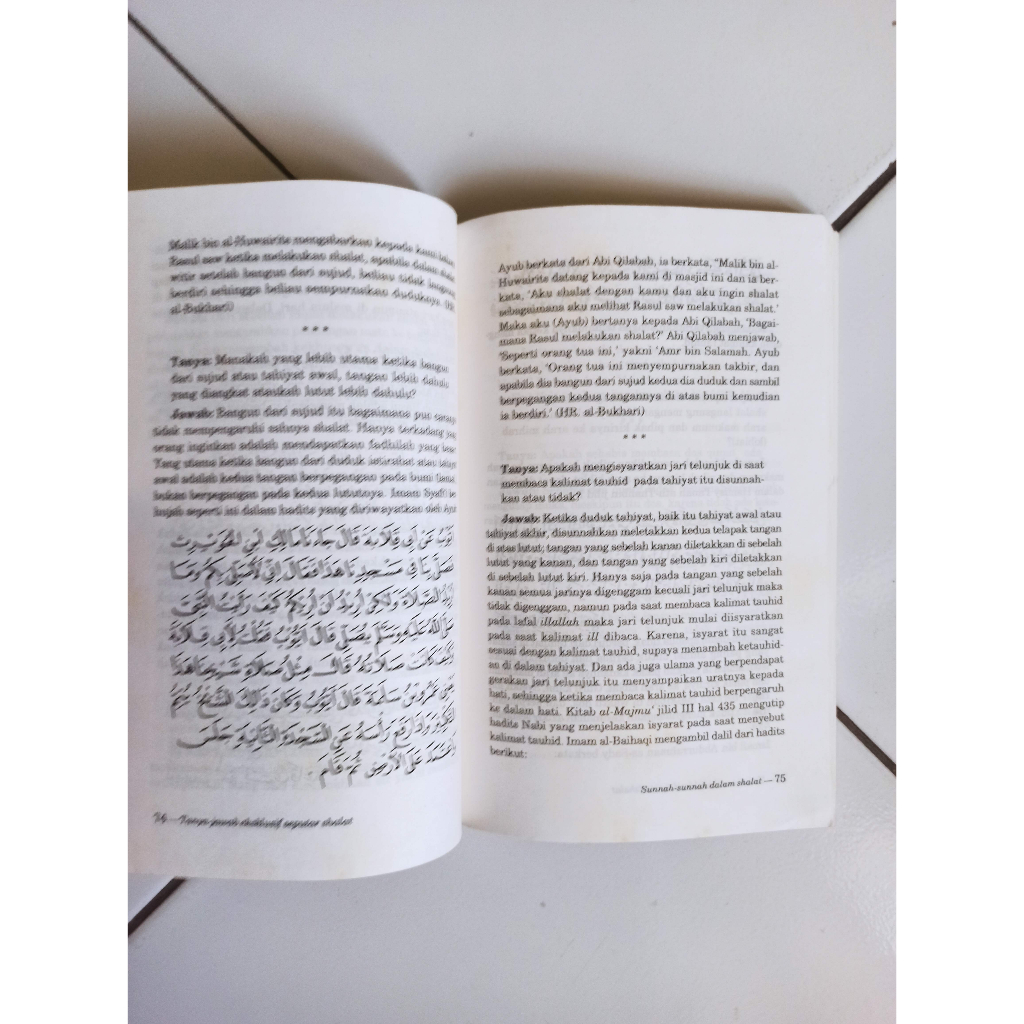 Malik bin al-Huwairits mengabarkan kepada kami
Rasul saw ketika melakukan shalat, apabila dalam
witir setelah bangun dari sujud, beliau tidak
berdiri sehingga beliau sempurnakan duduknya. (HR.
al-Bukhari)
***
Tanya: Manakah yang lebih utama ketika bangun
dari sujud atau tahiyat awal, tangan lebih dahulu
yang diangkat ataukah lutut lebih dahulu?
Jawab: Bangun dari sujud itu bagaimana pun
tidak mempengaruhi sahnya shalat. Hanya terkadang yang
orang inginkan adalah mendapatkan fadhilah yang
Yang utama ketika bangun dari duduk istirahat atau
awal adalah kedua tangan berpegangan pada bumi
bukan berpegangan pada kedua lututnya. Imam
seperti ini dalam hadits yang diriwayatkan oleh
أَيُّوبُ عَنْ أَبِي قِلَابَةَ قَالَ جَاءَنَا مَالِكُ بْنُ الْحُوَيْرِثِ
فَصَلَّى بِنَا فِي مَسْجِدِنَا هَذَا فَقَالَ إِنِّي لَأُصَلِّي بِكُمْ وَمَا
أُرِيدُ الصَّلَاةَ وَلَكِنْ أُرِيدُ أَنْ أُرِيَكُمْ كَيْفَ رَأَيْتُ النَّبِيَّ
صَلَّى اللهُ عَلَيْهِ وَسَلَّمَ يُصَلِّي قَالَ أَيُّوبُ فَقُلْتُ لِأَبِي قِلَابَةَ
وَكَيْفَ كَانَتْ صَلَاتُهُ قَالَ مِثْلَ صَلَاةِ شَيْخِنَا هَذَا
يَعْنِي عَمْرَو بْنَ سَلِمَةَ قَالَ أَيُّوبُ وَكَانَ ذَلِكَ الشَّيْخُ يُتِمُّ
التَّكْبِيرَ وَإِذَا رَفَعَ رَأْسَهُ عَنِ السَّجْدَةِ الثَّانِيَةِ جَلَسَ
وَاعْتَمَدَ عَلَى الْأَرْضِ ثُمَّ قَامَ.
74 — Tanya jawab eksklusif seputar shalat
Ayub berkata dari Abi Qilabah, ia berkata, "Malik bin al-
Huwairits datang kepada kami di masjid ini dan ia ber-
kata, 'Aku shalat dengan kamu dan aku ingin shalat
sebagaimana aku melihat Rasul saw melakukan shalat.'
Maka aku (Ayub) bertanya kepada Abi Qilabah, 'Bagai-
mana Rasul melakukan shalat?' Abi Qilabah menjawab,
'Seperti orang tua ini,' yakni 'Amr bin Salamah. Ayub
berkata, 'Orang tua ini menyempurnakan takbir, dan
apabila dia bangun dari sujud kedua dia duduk dan sambil
berpegangan kedua tangannya di atas bumi kemudian
ia berdiri.' (HR. al-Bukhari)
***
Tanya: Apakah mengisyaratkan jari telunjuk di saat
membaca kalimat tauhid pada tahiyat itu disunnah-
kan atau tidak?
Jawab: Ketika duduk tahiyat, baik itu tahiyat awal atau
tahiyat akhir, disunnahkan meletakkan kedua telapak tangan
di atas lutut; tangan yang sebelah kanan diletakkan di sebelah
lutut yang kanan, dan tangan yang sebelah kiri diletakkan
di sebelah lutut kiri. Hanya saja pada tangan yang sebelah
kanan semua jarinya digenggam kecuali jari telunjuk maka
tidak digenggam, namun pada saat membaca kalimat tauhid
pada lafal illallah maka jari telunjuk mulai diisyaratkan
pada saat kalimat ill dibaca. Karena, isyarat itu sangat
sesuai dengan kalimat tauhid, supaya menambah ketauhid-
an di dalam tahiyat. Dan ada juga ulama yang berpendapat
gerakan jari telunjuk itu menyampaikan uratnya kepada
hati, sehingga ketika membaca kalimat tauhid berpengaruh
ke dalam hati. Kitab al-Majmu' jilid III hal 435 mengutip
hadits Nabi yang menjelaskan isyarat pada saat menyebut
kalimat tauhid. Imam al-Baihaqi mengambil dalil dari hadits
berikut:
Sunnah-sunnah dalam shalat — 75